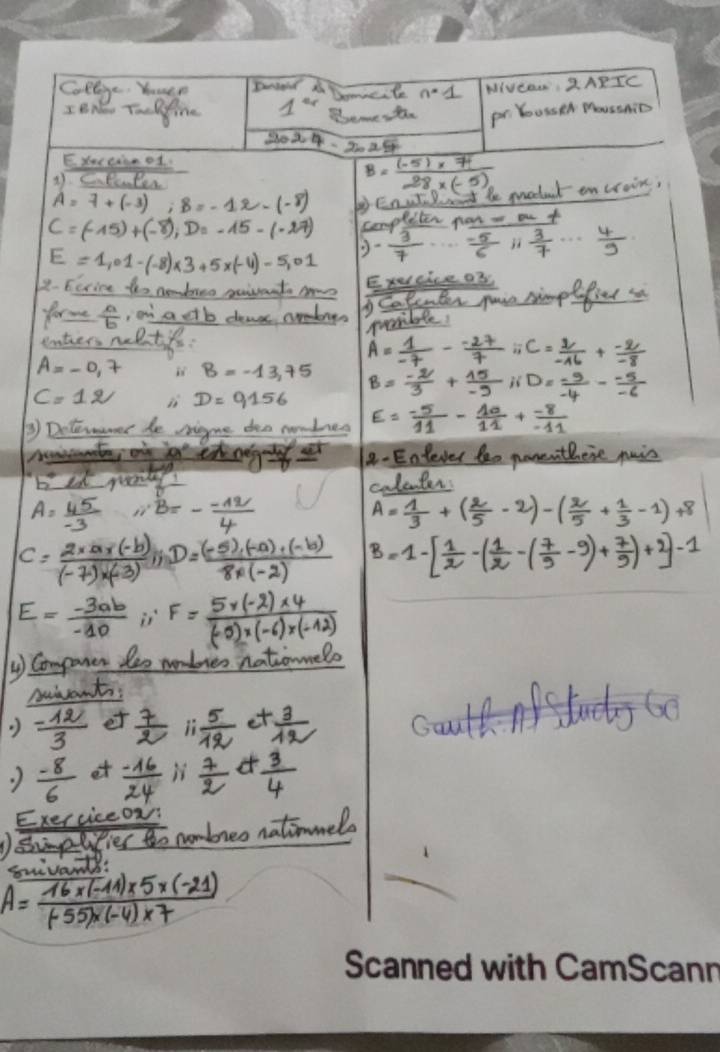 Collège Youssef
IBNou Tachfine
Devoir à Domicile n°1
1er Semestre
2024-2025
Niveau: 2APIC
pr. YOUSSRA MOUSSAID
Exercice 01:
1) Calculer
A = 7 + (-3) ; B = -12 - (-8)
C = (-15) + (-8) ; D = -15 - (-27)
E = 1,01 - (-8) × 3 + 5 × (-4) - 5,01
2- Ecrire les nombres suivants sous
forme a/b, où a et b deux nombres
entiers relatifs:
A = -0,7 ;; B = -13,75
C = 12 ;; D = 0,156
3) Determiner le signe des nombres
suivants, où "a" est négatif et
"b" est positif:
A = 45/-3 ;; B = - -12/4
C = 2×a×(-b)/(-7)×(-3) ;; D = (-5)×(-a)×(-b)/8×(-2)
E = -3ab/-10 ;; F = 5×(-2)×4/(-5)×(-6)×(-12)
4) Comparer les nombres rationnels
suivants:
.) -12/3 et 7/2 ;; 5/12 et 3/12
.) -8/6 et -16/24 ;; 7/2 et 3/4
Exercice 02:
1) Simplifier les nombres rationnels
suivants:
A = 16×(-11)×5×(-21)/(-55)×(-4)×7
B = (-5)×7/28×(-5)
2) En utilisant le produit en croix,
compléter par = ou ≠
.) - 3/7 .... -5/6 ;; 3/7 ... 4/9
Exercice 03:
1) Calculer puis simplifier si
possible:
A = 1/-7 - -27/7 ;; C = 2/-16 + -2/-8
B = -2/3 + 15/-9 ;; D = -9/-4 - -5/-6
E = -5/11 - 10/11 + -8/-11
2- Enlever les parenthèse puis
calculer:
A = 1/3 + (2/5 - 2) - (2/5 + 1/3 - 1) + 8
B = 1 - [1/2 - (1/2 - (7/9 - 9) + 7/9) + 2] - 1
Gauth. AI Study Go
Scanned with CamScann